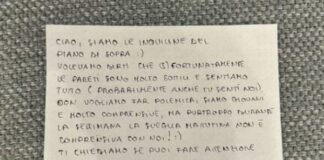 CIAO, SIAMO LE INQUILINE DEL
PIANO DI SOPRA :)
VOLEVAMO DIRTI CHE (S)FORTUNATAMENTE
LE PARETI SONO MOLTO SOTTILI E SENTIAMO
TUTTO (PROBABILMENTE ANCHE TU SENTI NOI).
NON VOGLIAMO FAR POLEMICA, SIAMO GIOVANI
E MOLTO COMPRENSIVE, MA PURTROPPO DURANTE
LA SETTIMANA LA SVEGLIA MATTUTINA NON È
COMPRENSIVA CON NOI! :)
TI CHIEDIAMO SE PUOI FARE ATTENZIONE